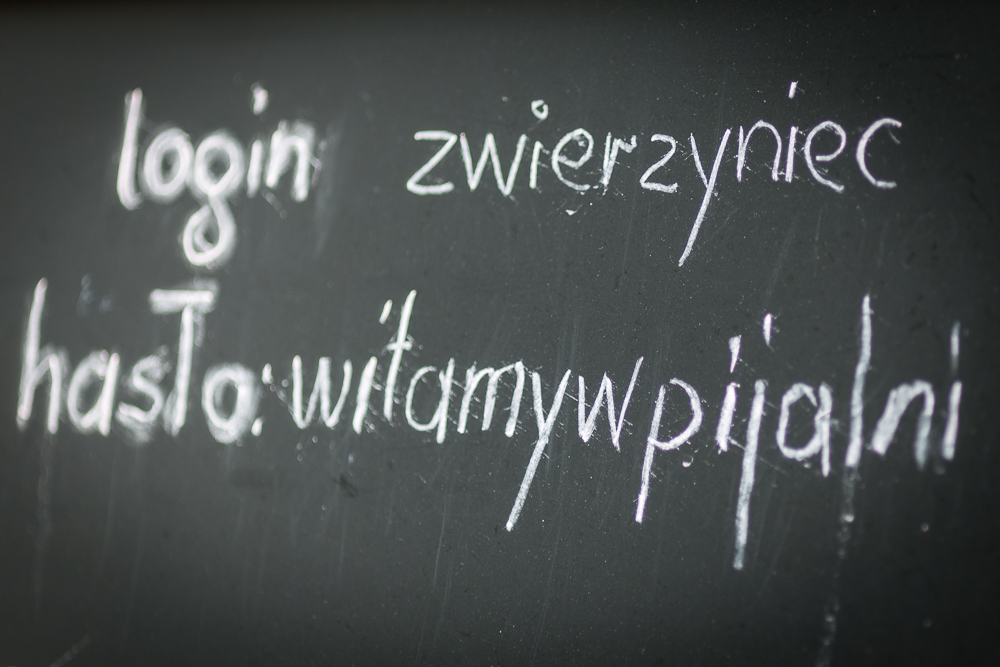 login zwierzyniec
hasło: witamywpijalni